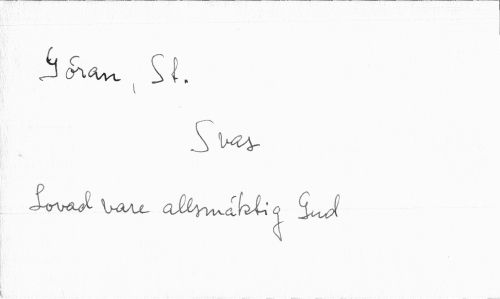 Göran, St.
Svas
Lovad vare allsmäktig Gud